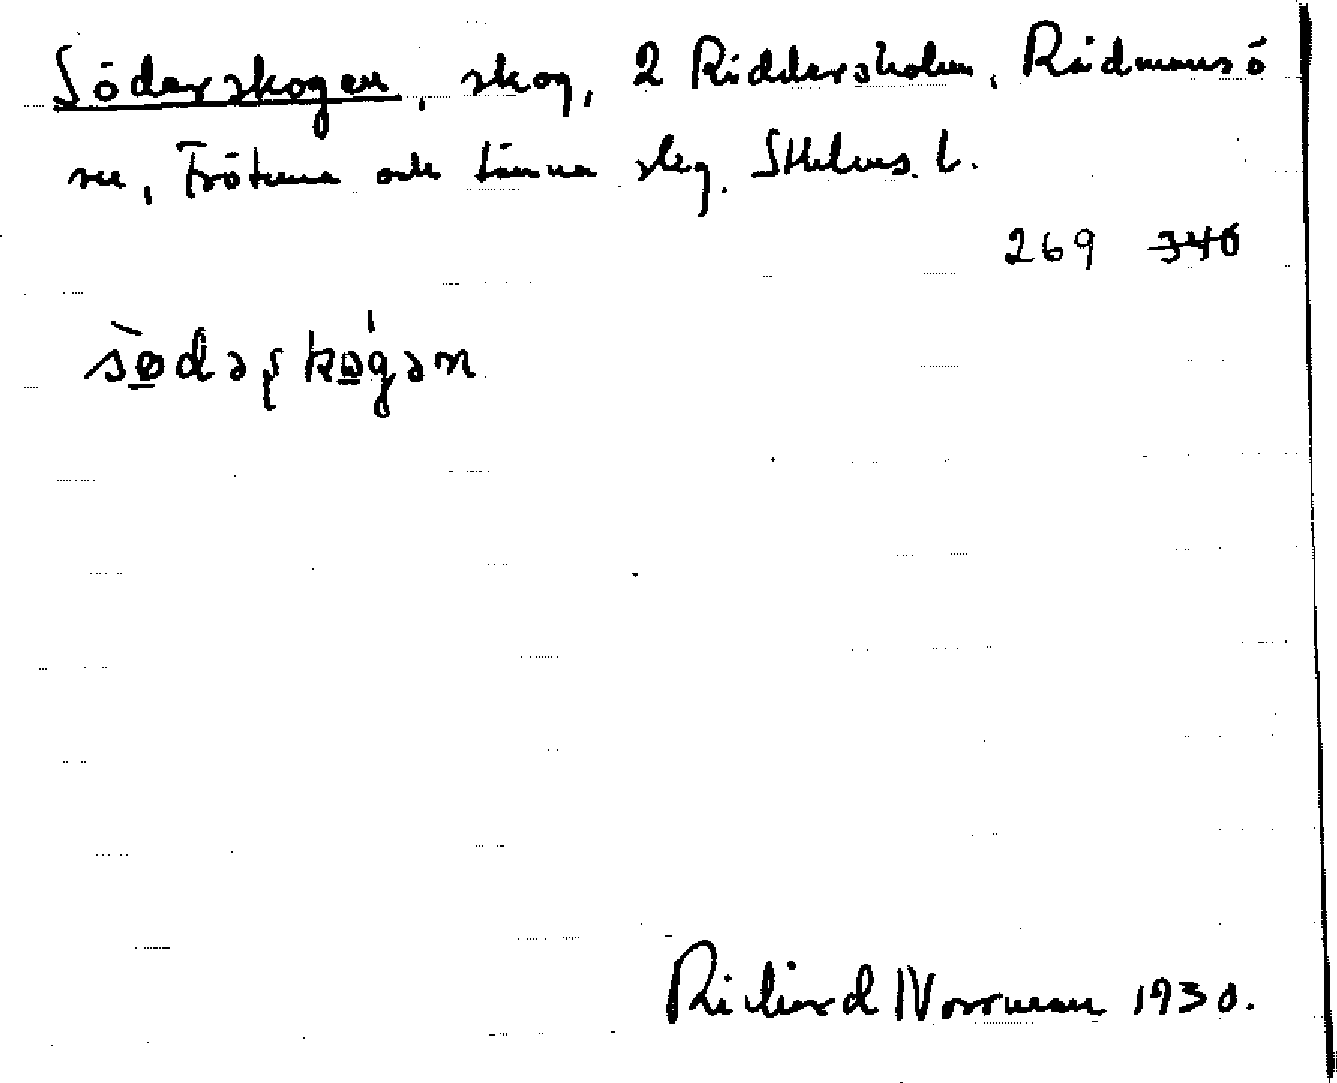 Söderskogen, skog, 2 Riddersholm, Rådmansö
sn, Frötuna och Länna skg. Sthlms. l.
269 346
sø̀dəʂkógən
Richard Norrman 1930.